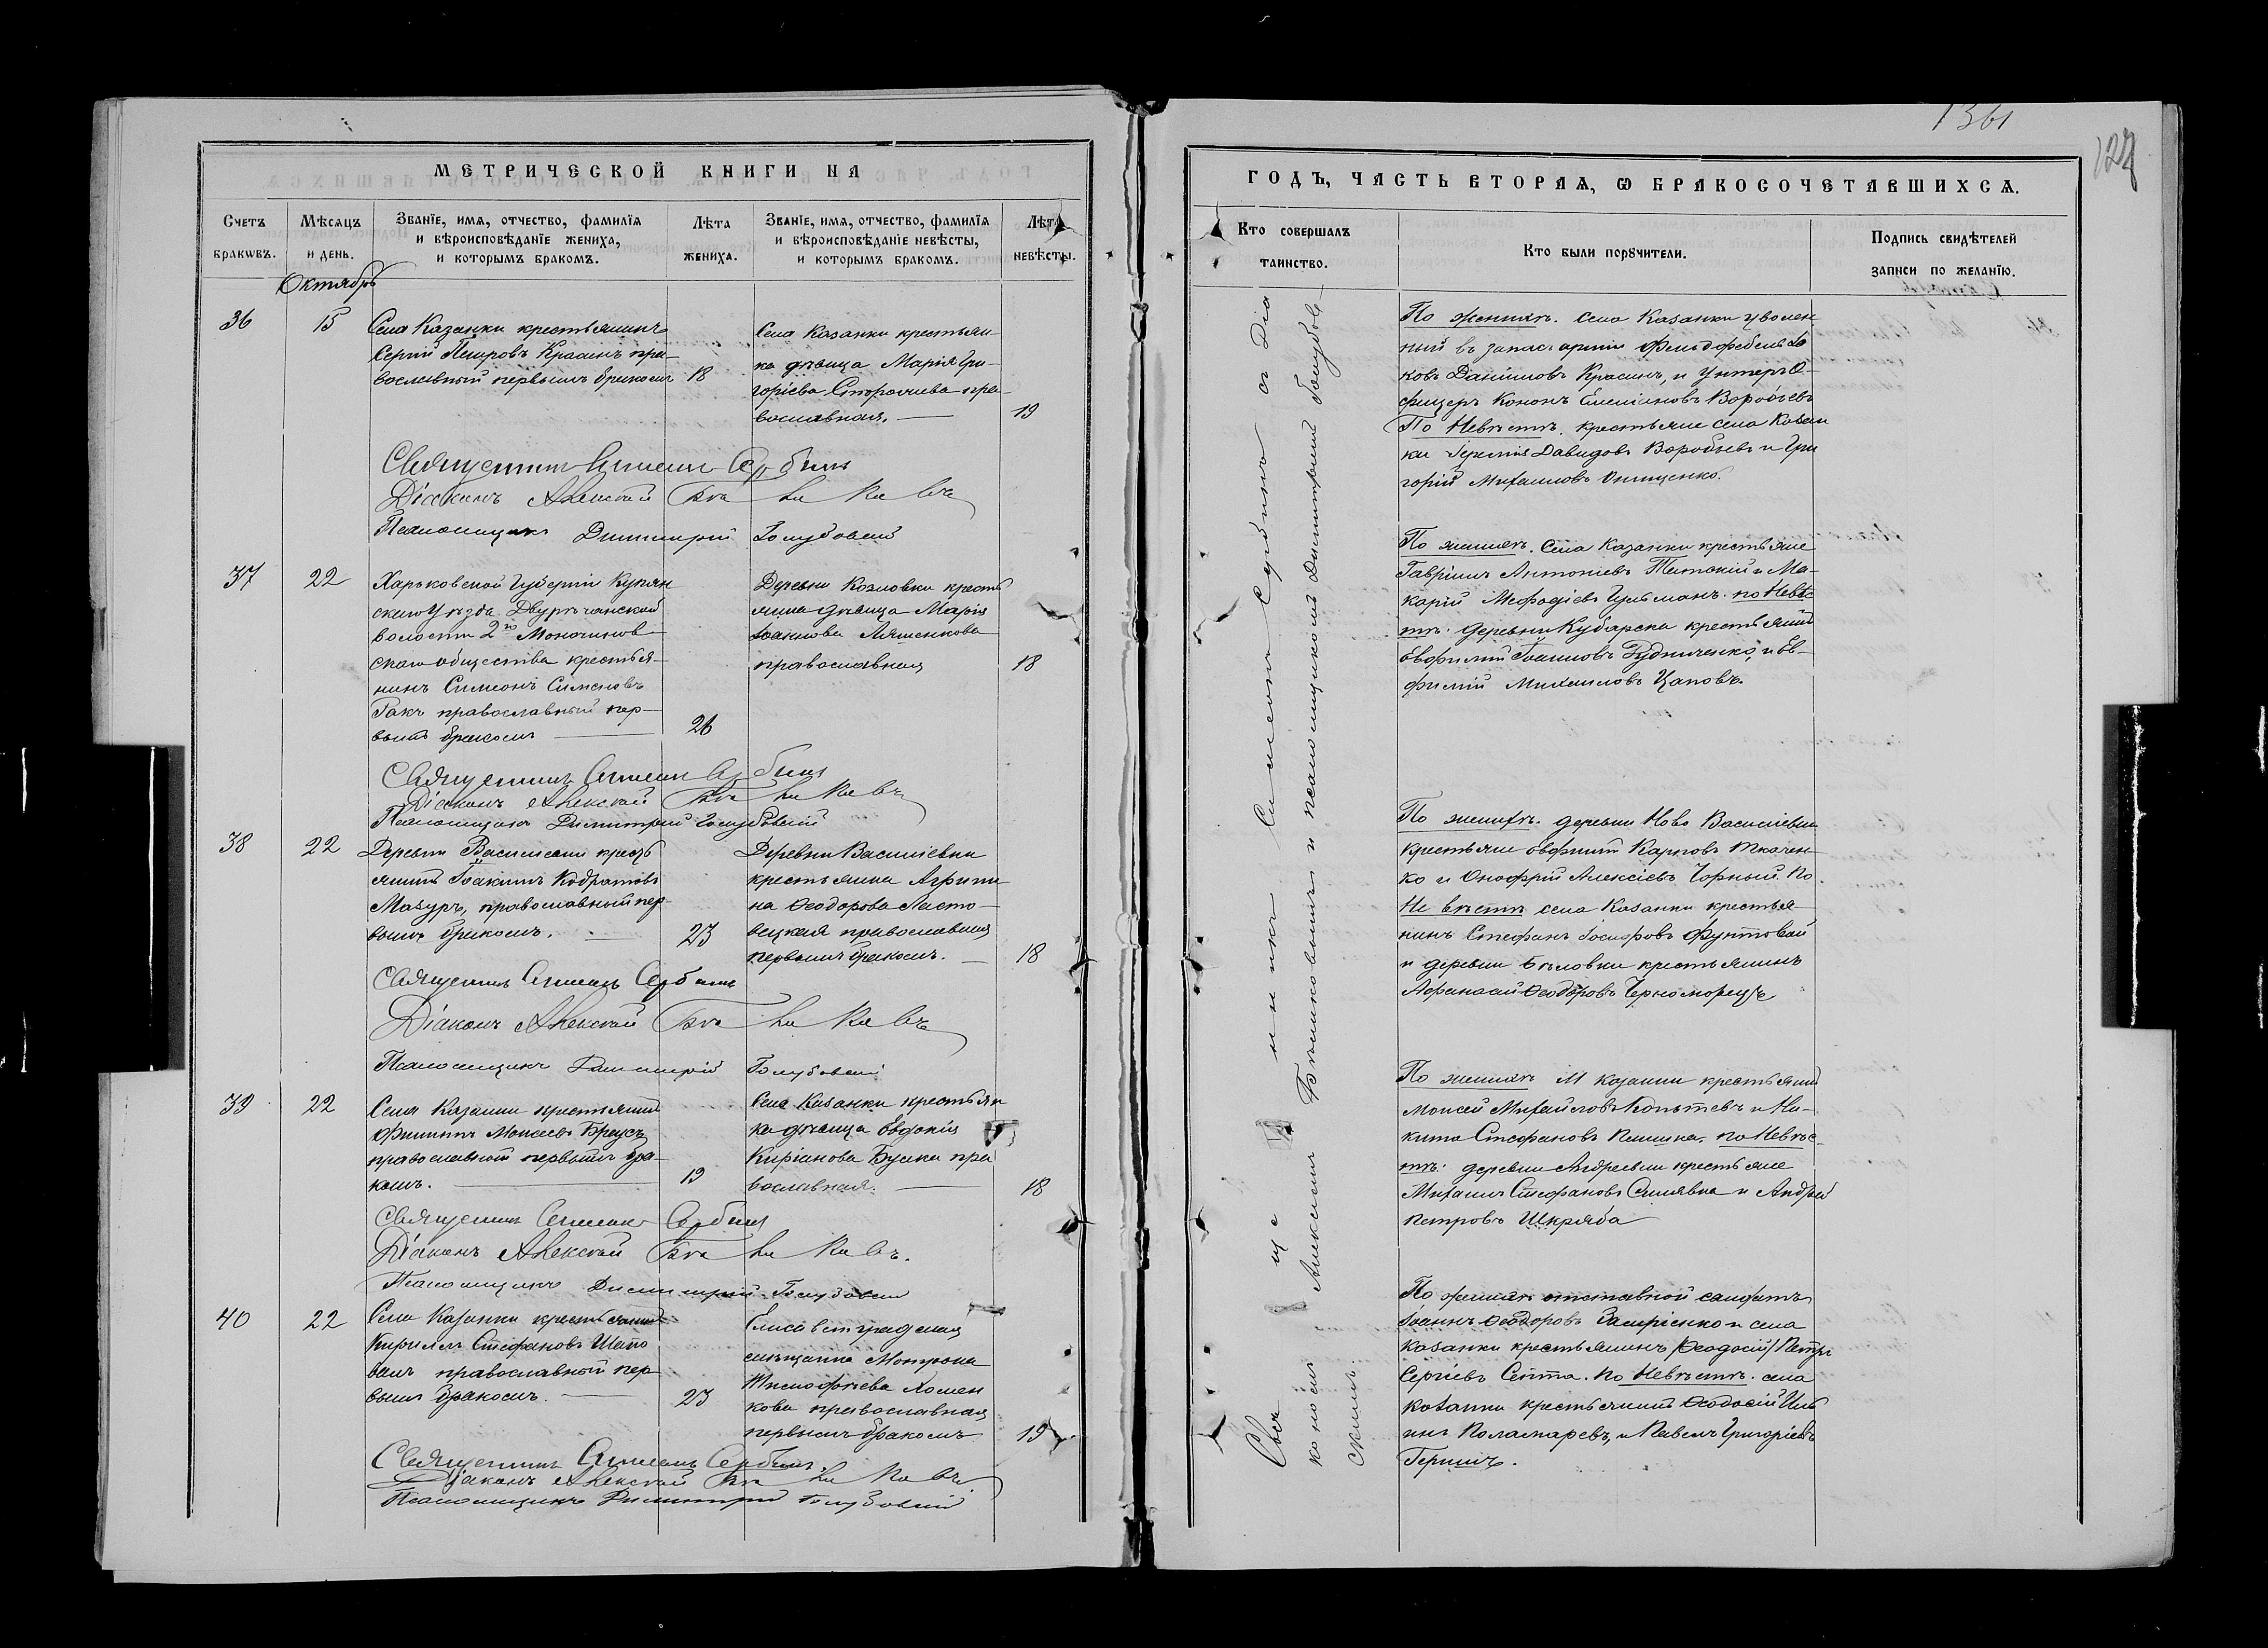 МЕТРИЧЕСКОЙ КНИГИ НА
Счетъ браковъ.
Мѣсяцъ и день.
Званїе, имя, отчество, фамилїя и вѣроисповѣданїе жениха, и которымъ бракомъ.
Лѣта жениха.
Званїе, имя, отчество, фамилїя и вѣроисповѣданїе невѣсты, и которымъ бракомъ.
Лѣта невѣсты.
Октябрь
36
15
Села Казанки крестьянинъ
Сергій Петровъ Красинъ пра-
вославный первымъ бракомъ
18
Села Казанки крестьян-
ка дѣвица Марія Гри-
горіева православная.
19
Священникъ Симеонъ Сербинъ
Діаконъ Алексій
Псаломщикъ Димитрій Голубовскій
37
22
Харьковской Губерніи Купян
скаго Уѣзда Двурѣчанской
волости 2го
скаго общества крестья-
нинъ Симеонъ Симеоновъ
Ракъ православный пер-
вымъ бракомъ
26
Деревни Козловки кресть
янка дѣвица Марія
Іоакимова Ляшенкова
православная
18
Священникъ Симеонъ Сербинъ
Діаконъ Алексій
Псаломщикъ Димитрій Голубовскій
38
22
Деревни Василіевки кресть
янинъ Іоакимъ Кодратовъ
Мазуръ, православный пер-
вымъ бракомъ.
23
Деревни Василіевки
крестьянка Агрипи-
на Ѳеодорова Ласто-
вецкая православная
первымъ бракомъ.
18
Священникъ Симеонъ Сербинъ
Діаконъ Алексій
Псаломщикъ Димитрій Голубовскій
39
22
Села Казанки крестьянинъ
Филиппъ Моисеевъ Бреусъ
православный первымъ бра-
комъ.
19
Села Казанки крестьян
ка дѣвица Евдокія
Киріанова Буцка пра
вославная.
18
Священникъ Симеонъ Сербинъ
Діаконъ Алексій
Псаломщикъ Димитрій Голубовскій
40
22
Села Казанки крестьянинъ
Кириллъ Стефановъ Шапо
валъ православный пер-
вымъ бракомъ.
23
Елисаветградская
мѣщанка Мотрона
Тимофѣева Хомен
кова православная
первымъ бракомъ
19
Священникъ Симеонъ Сербинъ.
Діаконъ Алексій
Псаломщикъ Димитрій Голубовскій
1361
ГОДЪ, ЧАСТЬ ВТОРАЯ, Ѡ БРАКОСОЧЕТАВШИХСЯ.
Кто совершалъ таинство.
Кто были порꙋчители.
Подпись свидѣтелей записи по желанїю.
Священникъ Симеонъ Сербинъ съ Діа
кономъ Алексіемъ и псаломщикомъ Димитріемъ Голубов-
скимъ.
По женихѣ. села Казанки уволен
ный въ запасъ арміи Фельдфебель Іа
ковъ Даніиловъ Красинъ, и Унтеръ О-
фицеръ Кононъ Емеліановъ Воробьевъ
По Невѣстѣ. крестьяне села Казан
ки Іеремія Давидовъ Воробьевъ и Гри
горій Михаиловъ Онищенко.
По женихѣ. Села Казанки крестьяне
Гавріилъ Антоніевъ и Ма-
карій Меѳодіевъ Гуцманъ. по Невѣс
тѣ. деревни Кубарска крестьянинъ
Евфимій Іоанновъ Рудниченко, и Ев-
фимій Михаиловъ Цаповъ.
По женихѣ. деревни Ново Василіевки
крестьяне Евфимій Карповъ Ткачен-
ко и Онофрій Алексіевъ Чорный По
Невѣстѣ села Казанки крестья-
нинъ Стефанъ Іосифовъ Фунтовой
и деревни Бѣловки крестьянинъ
Афанасій Ѳеодоровъ Черноморецъ
По женихѣ М Казанки крестьянинъ
Моисей Михайловъ и Ни-
кита Стефановъ. по Невѣс-
тѣ: деревни Андреевки крестьяне
Михаилъ Стефановъ Синявка и Андрей
Петровъ Шкряба
По женихѣ отставной солдатъ
Іоаннъ Ѳеодоровъ и села
Казанки крестьянинъ Ѳеодосій/Петръ
Сергіевъ. По Невѣстѣ. села
Казанки крестьянинъ Ѳеодосій Иль
инъ Поламаревъ, и Павелъ Григоріевъ